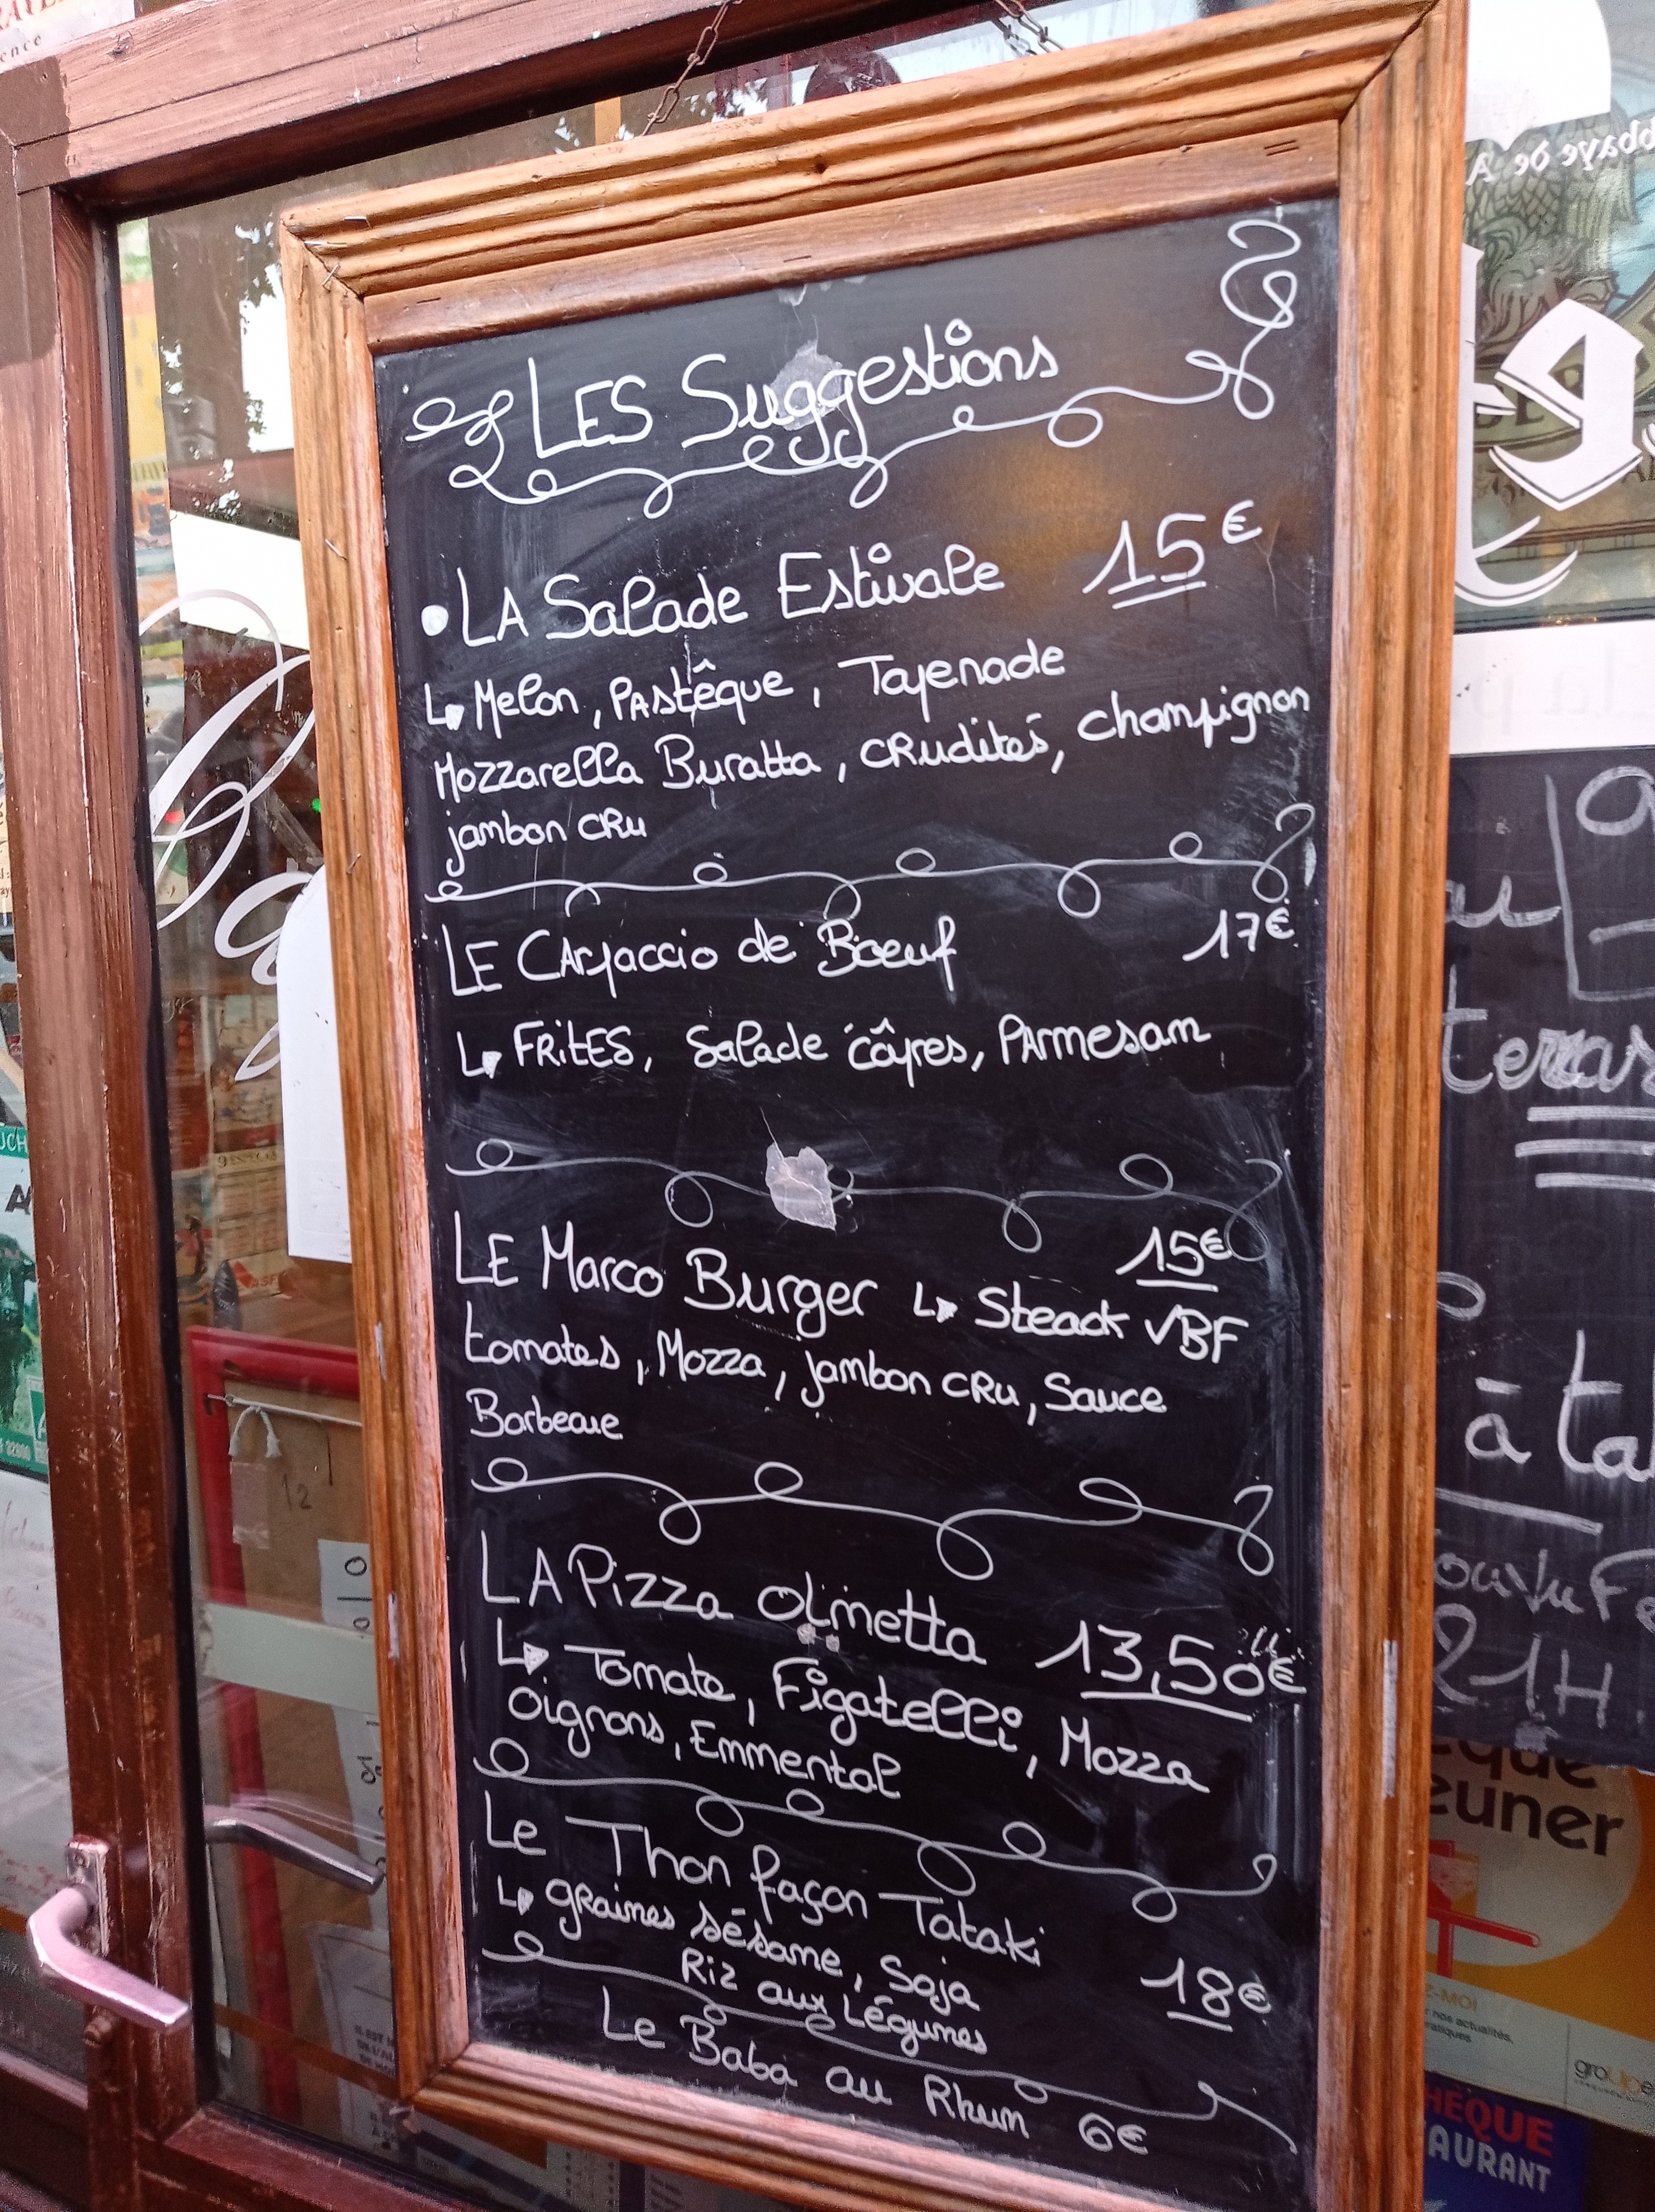 LES Suggestions
• LA Salade Estivale 15€
Melon, Pastêque, Tapenade
Mozzarella Buratta, crudités, champignon
jambon cru
LE Carpaccio de Boeuf 17€
Frites, Salade câpres, Parmesan
15€
LE Marco Burger Steack VBF
tomates, Mozza, jambon cru, Sauce
Barbecue
LA Pizza Olmetta 13,50€
Tomate, Figatelli, Mozza
Oignons, Emmental
Le Thon façon Tataki
graines sésame, Soja 18€
Riz aux Légumes
Le Baba au Rhum 6€
à
21H
euner
nos actualités,
ratiques
AURANT
12